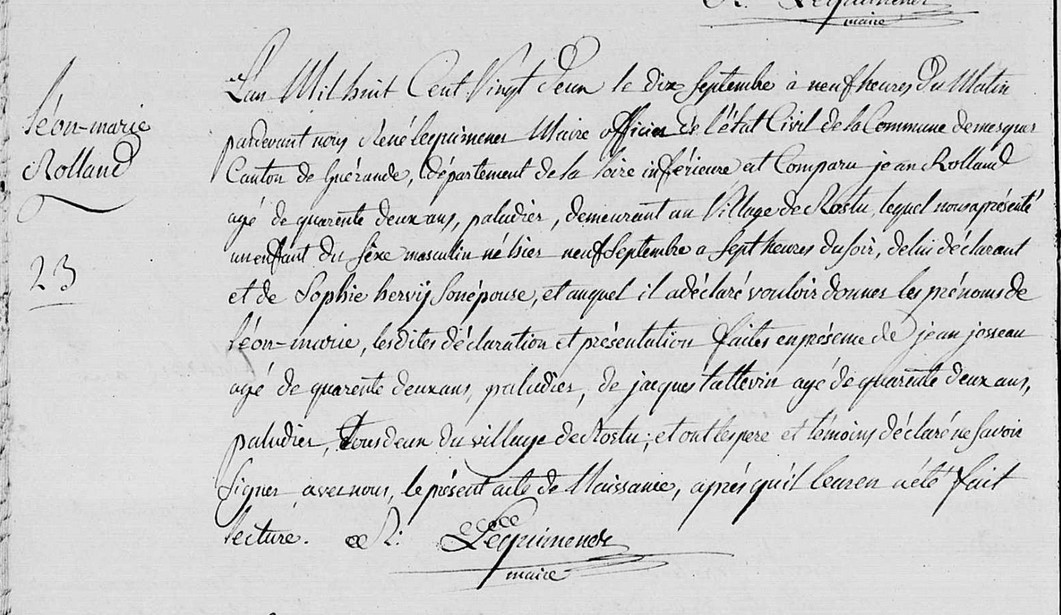 R. Lequimener
maire
Léon-marie
Rolland
23
L'an Mil huit Cent Vingt deux le dix Septembre à neuf heures du Matin
pardevant nous René lequimener Maire officier de l'état Civil de la Commune de mesquer
Canton de Guérande, département de la loire inférieure est Comparu jean Rolland
agé de quarente deux ans, paludier, demeurant au Village de Rostu, lequel nous a présenté
un enffant du séxe masculin né hier neuf Septembre a sept heures du soir, de lui déclarant
et de Sophie hervy son épouse, et auquel il a déclaré vouloir donner les prénoms de
léon-marie, lesdites déclaration et présentation faites en présence de jean josseau
agé de quarente deux ans, paludier, de jacques tattevin agé de quarente deux ans,
paludier, tous deux du village de Rostu; et ont les pere et témoins déclaré ne savoir
signer avec nous, le présent acte de Naissance, après qu'il leur en a été fait
lecture. R: Lequimener
maire